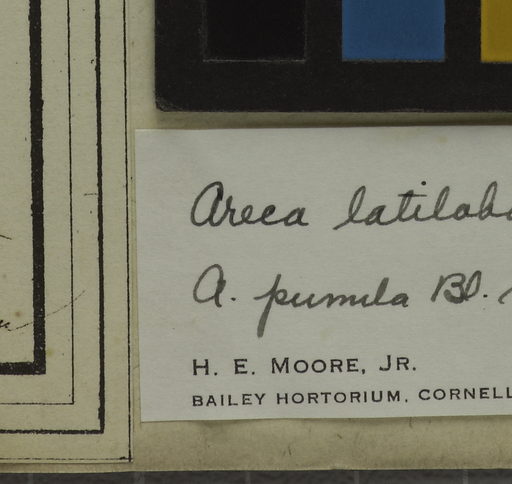 Areca latiloba
A. pumila Bl.
H. E. MOORE, JR.
BAILEY HORTORIUM, CORNELL